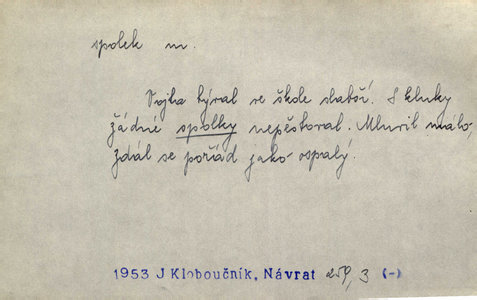 spolek m.
Vojta býval ve škole slabší. S kluky
žádné spolky nepěstoval. Mluvil málo,
zdál se pořád jako ospalý.
1953 J Kloboučník, Návrat 259, 3 (-)